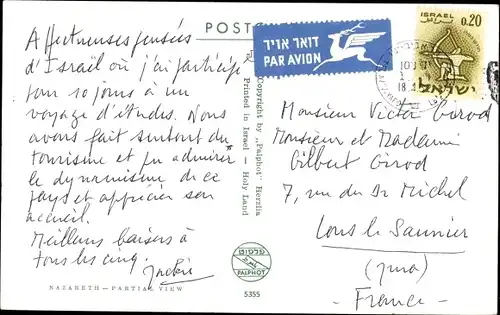 POSTC
Affectueuses pensées
d'Israël où j'ai participé
pour 10 jours à un
voyage d'études. Nous
avons fait surtout du
tourisme et pu admirer
le dynamisme de ce
pays et apprécier son
accueil.
Meilleurs baisers à
tous les cinq.
Jackie
NAZARETH — PARTIAL VIEW
Copyright by „Palphot" Herzlia
Printed in Israel — Holy Land
פלפוט
PALPHOT
5355
דואר אויר
PAR AVION
ISRAEL
0.20
ישראל
Monsieur Victor Girod
Monsieur et Madame
Gilbert Girod
7, rue du Dr Michel
Lons le Saunier
(Jura)
- France -